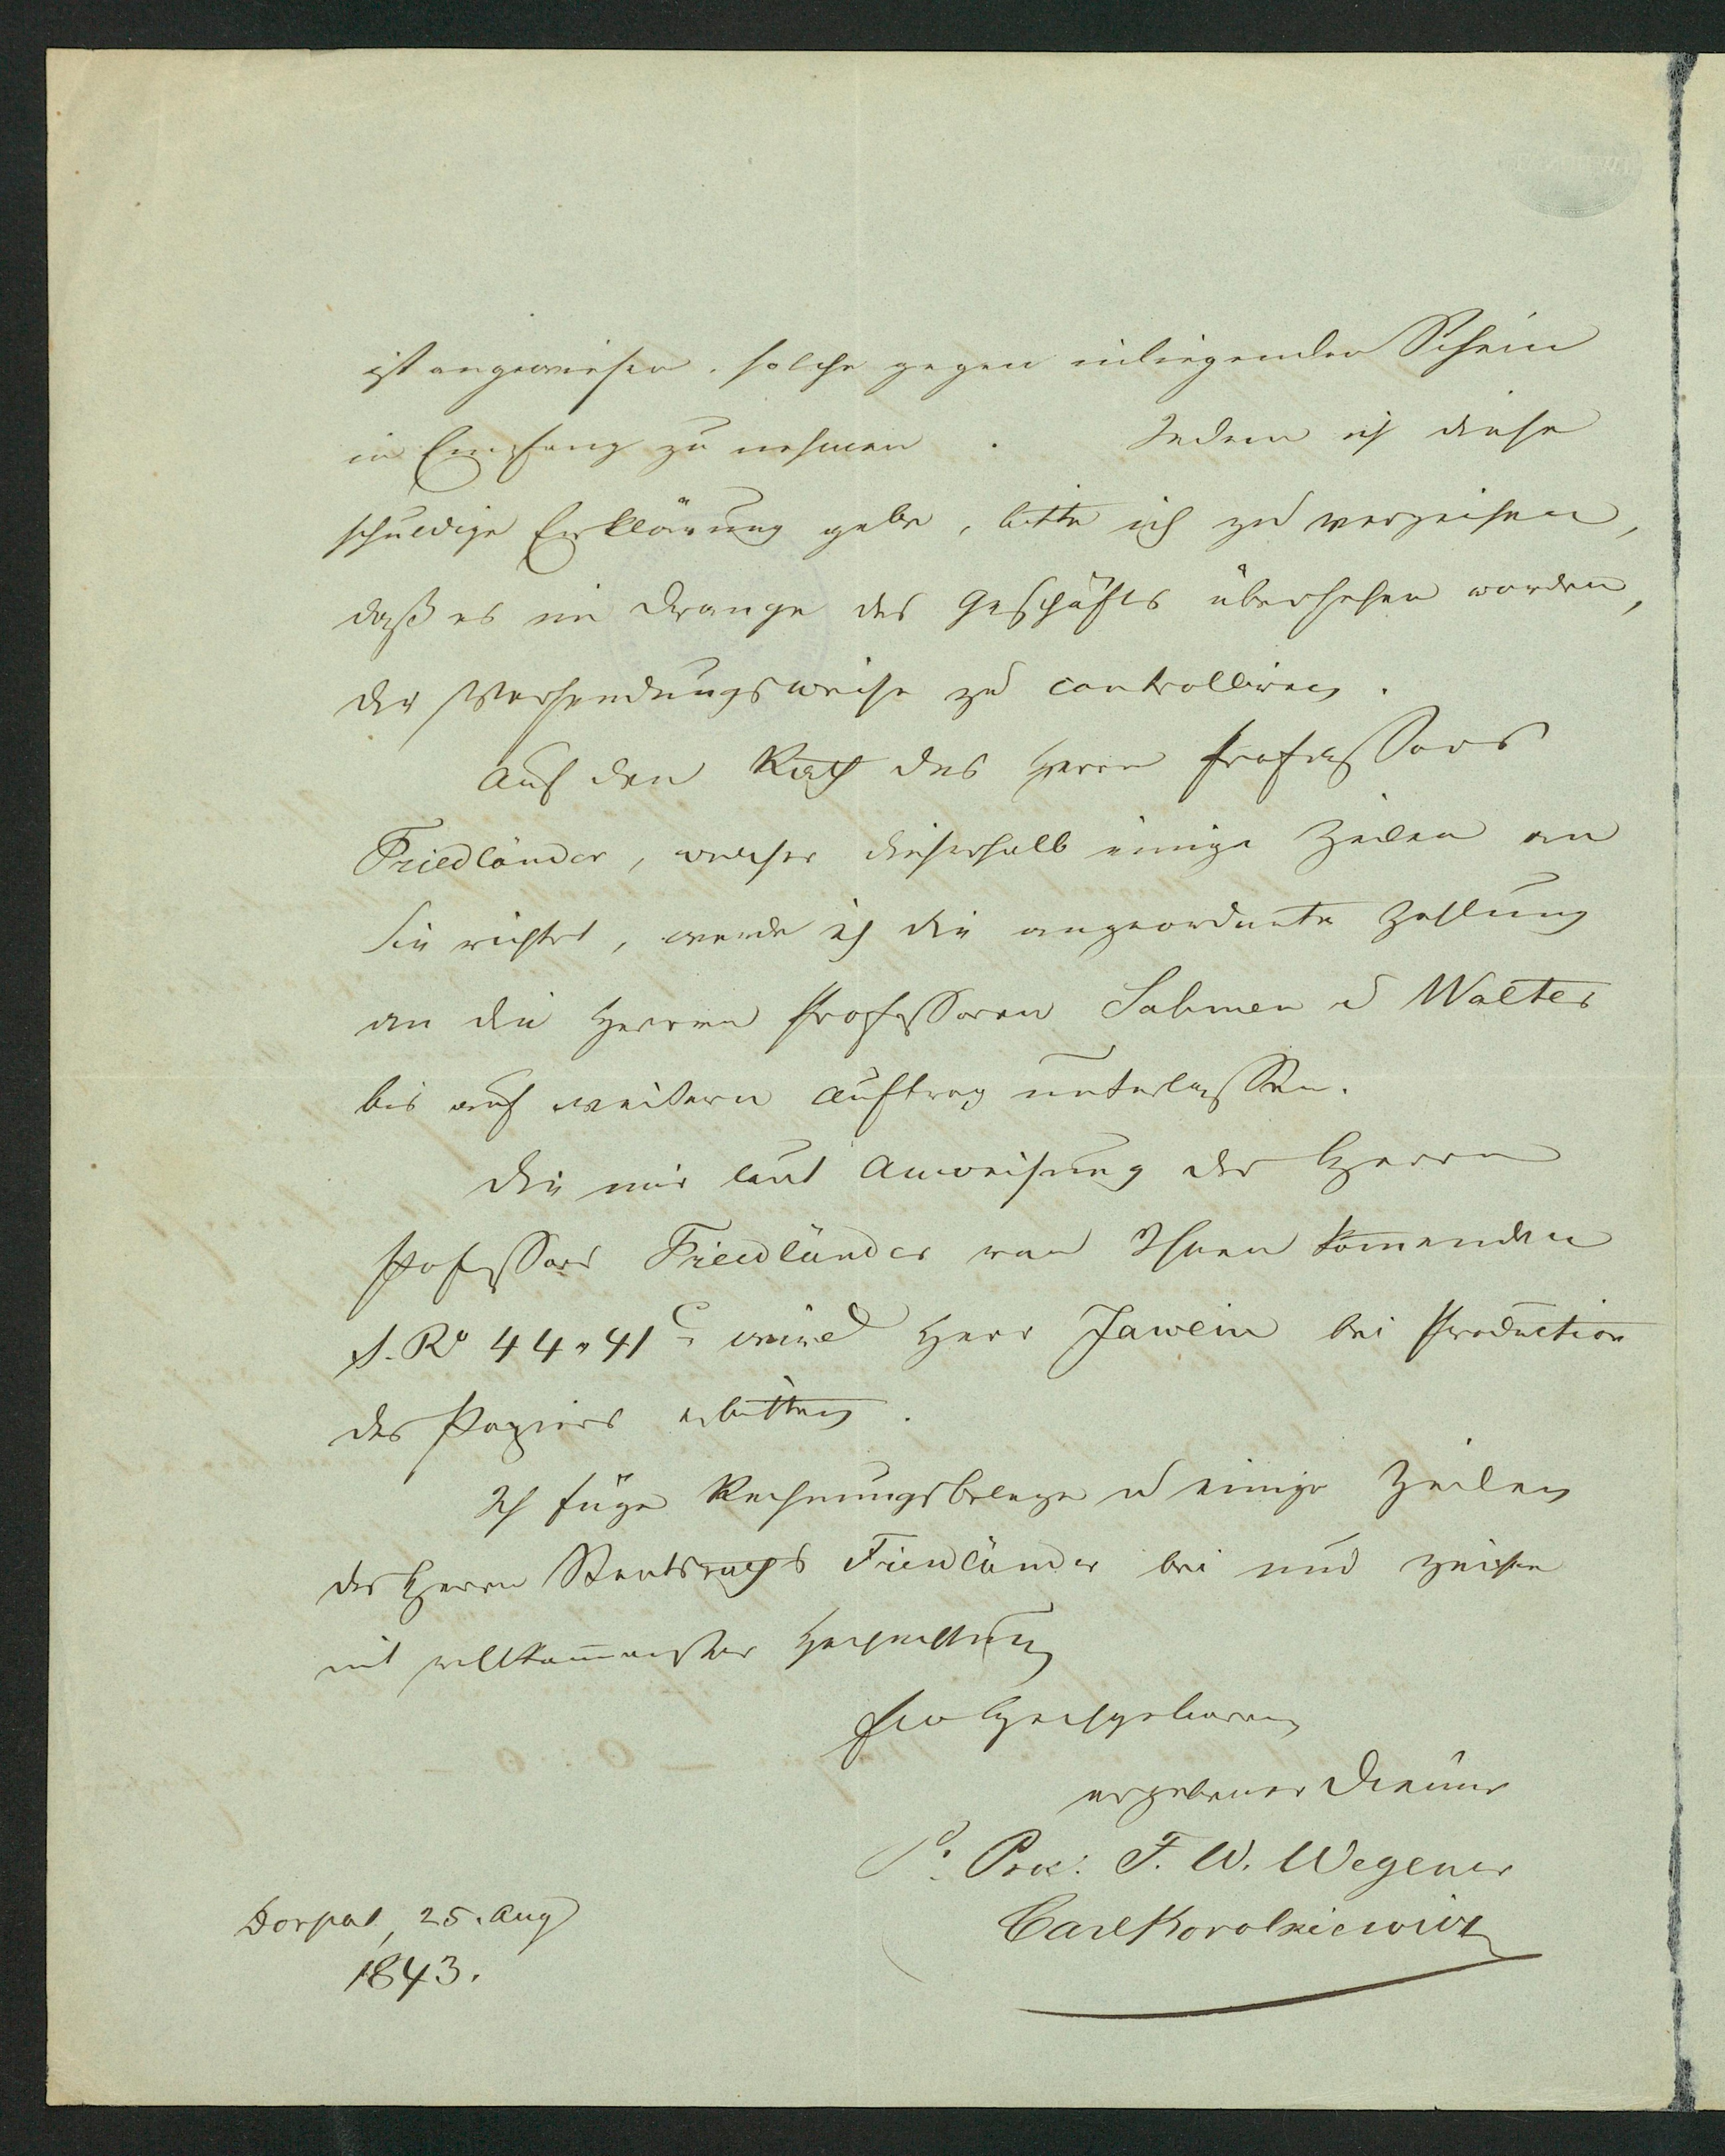 ist angewiesen, solche gegen inliegenden Schein
in Empfang zu nehmen. Indem ich diese
schuldige Erklärung gebe, bitte ich zu verzeihen,
daß es im Drange des Geschäfts übersehen worden,
die Versendungsweise zu controlliren.
Auf den Rath des Herrn Professors
Friedländer, welcher dieserhalb einige Zeilen an
Sie richtet, werde ich die angeordnete Zahlung
an die Herren Professoren Sahmen u Walter
bis auf weitern Auftrag unterlassen.
Die mir laut Anweisung des Herrn
Professors Friedländer von Ihnen kommenden
S. Ro 44 " 41 C wird Herr Jawein bei Production
des Papiers erbitten.
Ich füge Rechnungsbelege u einige Zeilen
des Herrn Staatsraths Friedländer bei und zeichne
mit vollkommenster Hochachtung
Ew Hochgeboren
ergebener Diener
P. Proc: F. W. Wegener
Carl Korolkiewicz
Dorpat, 25. Aug
1843.